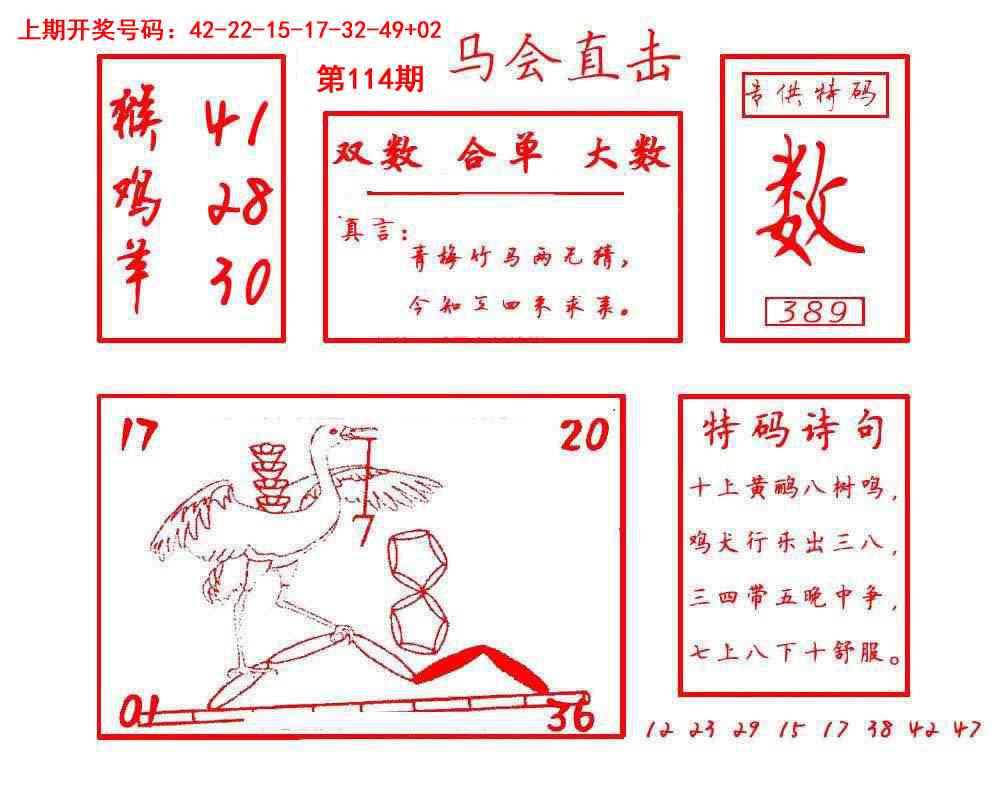 上期开奖号码：42-22-15-17-32-49+02
第114期
马会直击
猴 41
鸡 28
羊 30
双数 合单 大数
真言：
青梅竹马两无猜，
今知五四来求美。
专供特码
数
389
17
20
7
01
36
特码诗句
十上黄鹂八树鸣，
鸡犬行乐出三八，
三四带五晚中争，
七上八下十舒服。
12 23 29 15 17 38 42 47